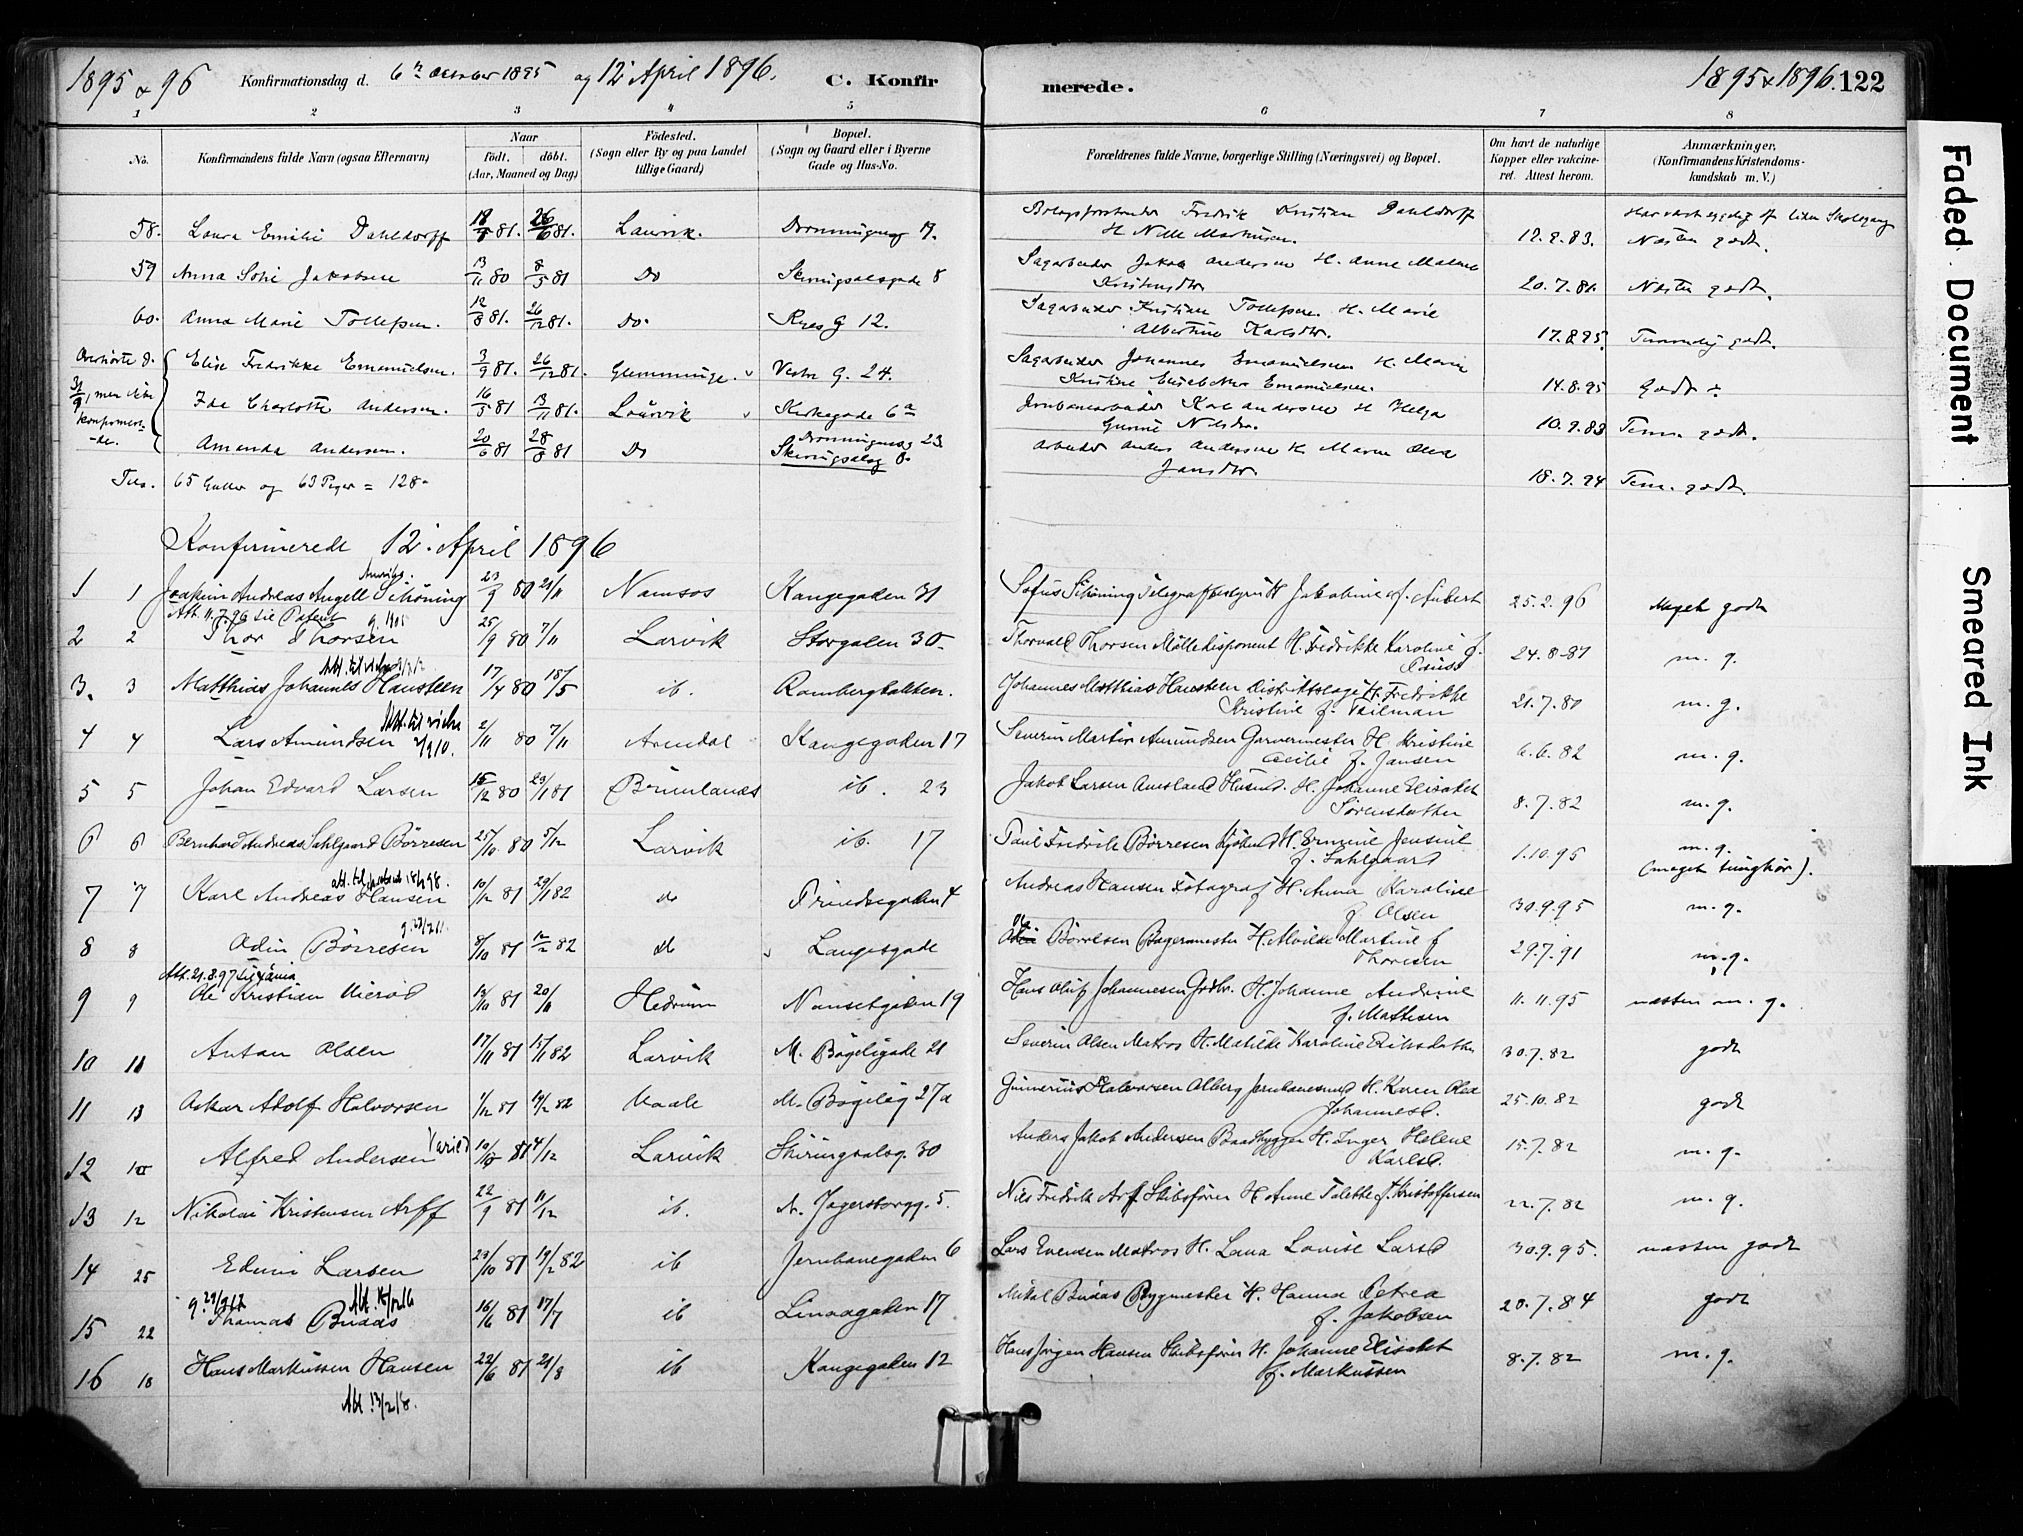 1895 & 96 Konfirmationsdag d. 6te October 1895 og 12 April 1896. C. Konfir merede. 1895 & 1896. 122
1 2 3 4 5 6 7 8
No. Konfirmandens fulde Navn (ogsaa Efternavn) Naar födt. döbt. (Aar, Maaned og Dag) Födested. (Sogn eller By og paa Landet tillige Gaard) Bopæl. (Sogn og Gaard eller i Byerne Gade og Hus-No. Forældrenes fulde Navne, borgerlige Stilling (Næringsvei) og Bopæl. Om havt de naturlige Kopper eller vakcineret. Attest herom. Anmærkninger. (Konfirmandens Kristendomskundskab m. V.)
58. Laura Emilie Dahldorff 18/8 81. 26/6 81. Laurvik. 19. Fredrik Kristian Dahldorff 12.9.83. Næsten godt.
59 Anna Sofie Jakobsen 13/11 80 8/5 81 Do Skiringsalsgade 8 Sagarbeider Jakob Andersen H. Anne Malene 20.7.81. Næsten godt.
60. Anna Marie Tollefsen. 12/8 81. 26/12 81. Do. Ryes G 12. Sagarbeider Kristian Tollefsen H. Marie
Albertine Karlsdtr. 17.8.95. Temmelig godt.
Elise Fredrikke Emanuelsen. 3/9 81. 26/12 81. Glemminge. Vestre G. 24. Sagarbeider Johannes Emanuelsen H. Marie
14.8.95 Godt
Ida Charlotte Andersen. 16/5 81 13/11 81. Laurvik Kirkegade 6a Jernbanearbeider Karl Andersen H Helga
10.9.83 Tem. godt.
Amanda Andersen. 20/6 81 28/8 81 Do Dronningensg 23
Skiringsalsg 8. Arbeider Anders Andersen H. Maren Olea
Jansdtr. 18.7.94 Tem. godt.
Tils. 65 Gutter og 63 Piger = 128.
Konfirmerede 12. April 1896
1 1 Joakim Andreas Angell Schöning 23/9 80 21/11 Namsos Kongegaden 31 Sofus Schöning Telegrafbestyrer H. Jakobine f. Aubert 25.2.96 Meget godt
2 2 Thor Thorsen 25/9 80 7/11 Larvik Storgaden 30. Thorvald Thorsen Mölledisponent H. Fredrikke Karoline f.
24.8.81 m. g.
3. 3 Matthias Johannes Hansteen 17/4 80 18/5 ib. Rambergbakken. Johannes Matthias Hansteen Distriktslæge H. Fredrikke
Kristine f. 21.7.80 m. g.
4 4 Lars Amundsen 2/11 80 7/11 Arendal Kongegaden 17 Severin Martin Amundsen Garvermester H. Kristine
Cecilie f. Jansen 6.6.82 m. g.
5 5 Johan Edvard Larsen 15/12 80 23/1 81 Brunlanes ib. 23 Jakob Larsen Husmd. H. Johanne Elisabet
Sörensdatter 8.7.82 m. g.
6 6 Bernhard Andreas Sahlgaard Börresen 25/10 80 5/12 Larvik ib. 17 Paul Fredrik Börresen Kjöbmd H. Ermine Jensine
f. Sahlgaard 1.10.95 m. g.
(meget tunghör).
7 7 Karl Andreas Hansen 10/12 81 29/1 82 do Prindsegaden 4 Andreas Hansen Fotograf H. Anna Karoline
f. Olsen 30.9.95 m. g.
8 8 Odin Börresen 8/10 81 12/2 82 do Langesgade Börresen Bagermester H. Martine f
Thoresen 29.7.91 m. g.
9 9 Ole Kristian Vieröd 81 20/11 Hedrum Nansetgaden 19 Hans Oluf Johannesen Gdbr. H. Johanne Andrine
f. Mathisen 11.11.95 næsten m. g.
10 11 Anton Olsen 17/11 81 15/1 82 Larvik M. Bögeligade 21 Severin Olsen Matros H. Matilde Karoline Eriksdatter 30.7.82 godt
11 13 Oskar Adolf Halvorsen 1/12 81 19/2 82 Vaale M. Bögelig 27a Gunerius Halvorsen Olberg Jernbanemd H. Karen Olea
Johannesd. 25.10.82 godt
12 Alfred Andersen 19/10 81 4/12 Larvik Skiringsalsg. 30 Anders Jakob Andersen Baadbygger H. Inger Helene
Karlsd. 15.7.82 m. g.
13 12 Nikolai Kristensen Arff 22/9 81 11/12 ib. N. Jegersborgg. 5. Nils Fredrik Arff Skibsförer H. Anne Tolette f. Kristoffersen 22.7.82 m. g.
14 25 Edvin Larsen 23/10 81 19/2 82 ib Jernbanegaden 6 Lars Evensen Matros H. Lana Lovise Larsd 30.9.95. næsten godt
15 22 Thomas Buaas 16/6 81 17/7 ib Linaagaden 17 Mikal Buaas Bygmester H. Hanna Petrea
f. Jakobsen 20.7.84 godt
16 18 Hans Markussen Hansen 22/6 81 21/8 ib Kongegaden 12 Hans Jörgen Hansen Skibsförer H. Johanne Elisabet
f. Markussen 8.7.82 m. g.
Faded Document
Smeared Ink